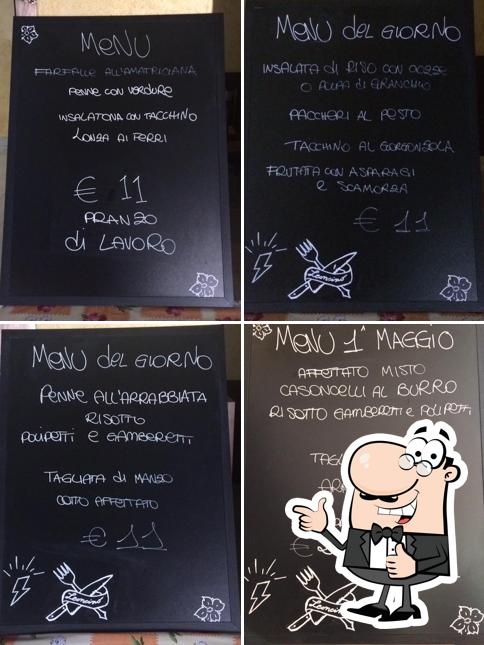 MENU
FARFALLE ALL'AMATRICIANA
PENNE CON VERDURE
INSALATONA CON TACCHINO
LONZA AI FERRI
€ 11
PRANZO
di LAVORO
MENU del GIORNO
INSALATA di RISO CON COZZE
O POLPA di GRANCHIO
PACCHERI AL PESTO
TACCHINO AL GORGONZOLA
FRITTATA CON ASPARAGI
E SCAMORZA
€ 11
MENU del GIORNO
PENNE ALL'ARRABBIATA
RISOTTO
POLIPETTI E GAMBERETTI
TAGLIATA di MANZO
COTTO AFFETTATO
€ 11
MENU 1° MAGGIO
AFFETTATO MISTO
CASONCELLI AL BURRO
RISOTTO GAMBERETTI E POLIPETTI
TAGL
€